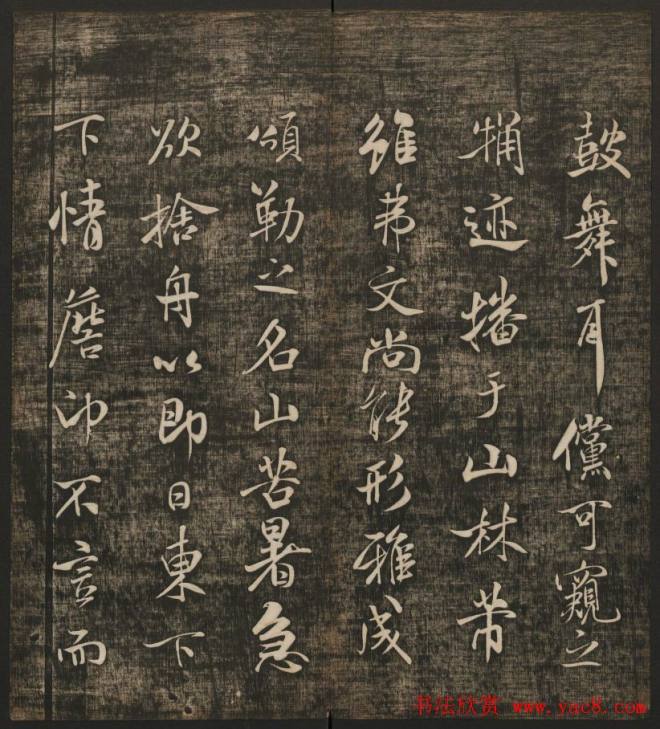 鼓舞耳儻可窺之
㹛迹播于山林带
雖弗文尚能形雅成
頌勒之名山苦暑急
欲捨舟以即日東下
下情詹卬不言而
书法欣赏 www.yac8.com